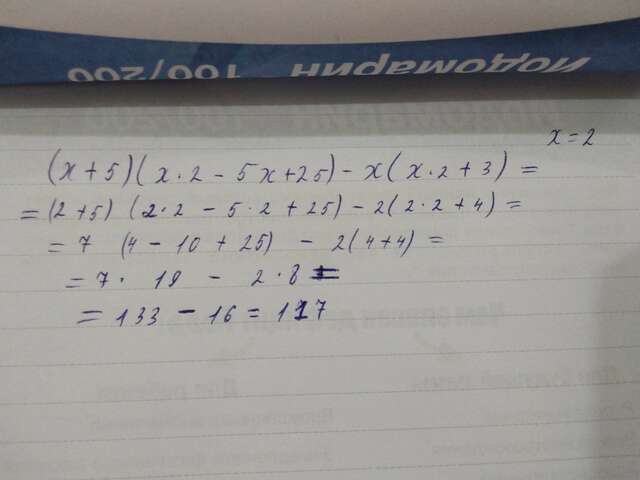 Йодомарин 100/200
x=2
(x+5)(x·2-5x+25)-x(x·2+3)=
=(2+5) (2·2-5·2+25)-2(2·2+4)=
=7 (4-10+25) - 2(4+4)=
=7· 19 - 2·8=
=133-16=117